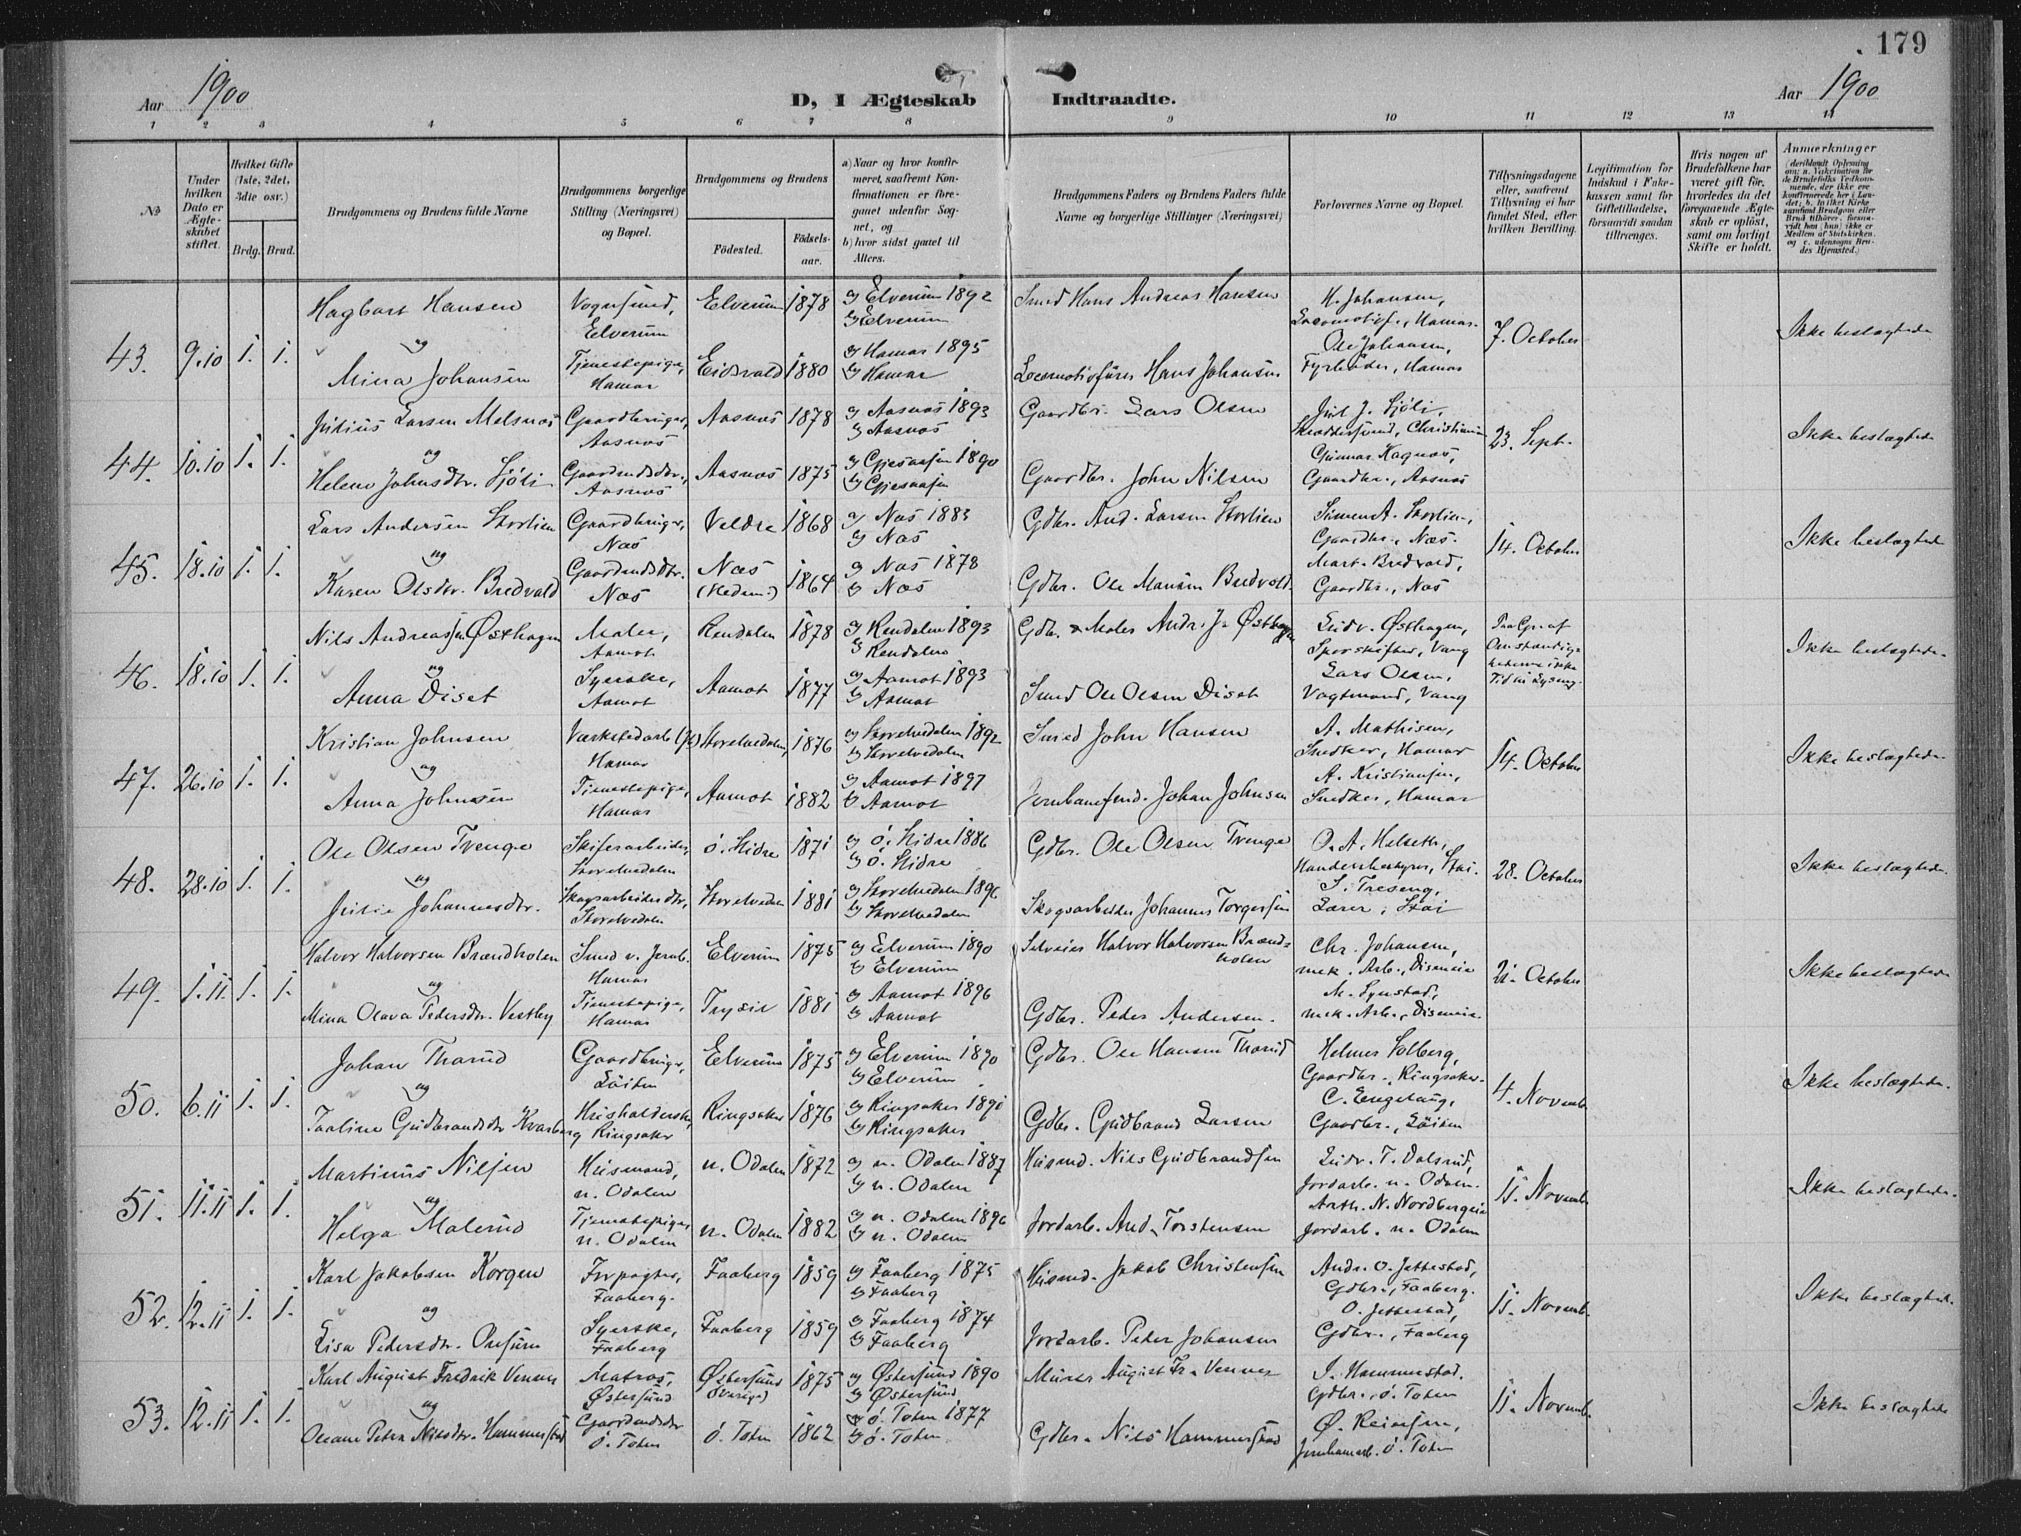 179
Aar 1900
D, I Ægteskab Indtraadte.
Aar 1900
1 2 3 4 5 6 7 8 9 10 11 12 13 14
No
Under hvilken Dato er Ægteskabet stiftet.
Hvilket Gifte (1ste, 2det, 3die osv.)
Brdg. Brud.
Brudgommens og Brudens fulde Navne
Brudgommens borgerlige Stilling (Næringsvei) og Bopæl.
Brudgommens og Brudens
Fødested.
Fødselsaar.
a) Naar og hvor konfirmeret, saafremt Konfirmationen er foregaaet udenfor Sognet, og
b) hvor sidst gaaet til Alters.
Brudgommens Faders og Brudens Faders fulde Navne og borgerlige Stillinger (Næringsvei)
Forlovernes Navne og Bopæl.
Tillysningsdagene eller, saafremt Tillysning ei har fundet Sted, efter hvilken Bevilling.
Legitimation for Indskud i Enkekassen samt for Giftetilladelse, forsaavidt saadan tiltrænges.
Hvis nogen af Brudefolkene har været gift før, hvorledes da det foregaaende Ægteskab er opløst, samt om lovligt Skifte er holdt.
Anmerkninger
43. 9.10 1. 1.
Hagbart Hansen
og
Mina Johansen
Vognsmand, Elverum
Tjenestepige, Hamar
Elverum 1878
Eidsvold 1880
a) Elverum 1892
b) Elverum
a) Hamar 1895
b) Hamar
Smed Hans Andreas Hansen
Locomotivfører Hans Johansen
H. Johansen,
Locomotivf., Hamar.
Ole Johansen,
Fyrbøder, Hamar
7. October
Ikke beslægtede
44. 10.10 1. 1.
Julius Larsen Melsnæs
og
Helene Johnsdtr. Sjøli
Gaardbruger, Aasnæs
Gaardmdsdtr., Aasnæs
Aasnæs 1878
Aasnæs 1875
a) Aasnæs 1893
b) Aasnæs
a) Gjesaasen 1890
b) Gjesaasen
Gaardbr. Lars Olsen
Gaardbr. John Nilsen
Juul J. Sjøli,
Skræddersvend, Christiania
Gunnar Kagnæs,
Gaardbr., Aasnæs
23. Sept.
Ikke beslægtede
45. 18.10 1. 1.
Lars Andersen Storlien
og
Karen Olsdtr. Bredvold
Gaardbruger, Næs
Gaardmdsdtr. Næs
Veldre 1868
Næs (Hedem.) 1864
a) Næs 1883
b) Næs
a) Næs 1878
b) Næs
Gdbr. And. Larsen Storlien
Gdbr. Ole Monsen Bredvold.
Simen A. Storlien,
Gaardbr., Næs.
Mart. Bredvold,
Gaardbr., Næs
14. October
Ikke beslægtede
46. 18.10 1. 1.
Nils Andreassen Østhagen
og
Anna Diset
Maler, Aamot
Syerske, Aamot
Rendalen 1878
Aamot 1877
a) Rendalen 1893
b) Rendalen
a) Aamot 1893
b) Aamot
Gdbr. & Maler Andr. J. Østhagen
Smed Ole Olsen Diset
Ludv. Østhagen,
Sporskifter, Vang
Lars Olsen,
Vogtmand, Vang
Ikke beslægtede.
47. 26.10 1. 1.
Kristian Johnsen
og
Anna Johnsen
Værkstedarb. Hamar
Tjenestepige, Hamar
Storelvedalen, 1876
Aamot 1882
a) Storelvedalen 1892
b) Storelvedalen
a) Aamot 1897
b) Aamot
Smed John Hansen
Jernbanefmd. Johan Johnsen
A. Mathisen,
Snedker, Hamar
A. Kristiansen,
Snedker, Hamar
14. October
Ikke beslægtede
48. 28.10 1. 1.
Ole Olsen Trenge
og
Julie Johannesdtr.
Skiferarbeider, Storelvedalen
Skogsarbeidersdtr., Storelvedalen
ø. Slidre 1871
Storelvedalen 1881
a) ø. Slidre 1886
b) ø. Slidre
a) Storelvedalen 1896
b) Storelvedalen
Gdbr. Ole Olsen Trenge
Skogsarbeider Johannes Torgersen
O. A. Helseth,
Handelsbestyrer, Stai.
S. Treseng,
Lærer, Stai
28. October
Ikke beslægtede.
49. 1.11. 1. 1.
Halvor Halvorsen Brændholen
og
Mina Olava Pedersdtr. Vestby
Smed v. Jernb. Hamar
Tjenestepige, Hamar
Elverum 1875
Trysil 1881
a) Elverum 1890
b) Elverum
a) Aamot 1896
b) Aamot
Selveier Halvor Halvorsen Brændholen
Gdbr. Peder Andersen.
Chr. Johansen,
mek. Arb., Disenveien
M. Lynstad,
mek. Arb., Disenveien.
21. October
Ikke beslægtede
50. 6.11 1. 1.
Johan Thorud
og
Paaline Gudbrandsdtr Kvarberg
Gaardbruger, Løiten
Husholderske, Ringsaker
Elverum 1875
Ringsaker 1876
a) Elverum 1890
b) Elverum
a) Ringsaker 1890
b) Ringsaker
Gdbr. Ole Hansen Thorud
Gdbr. Gudbrand Larsen
Helmer Solberg,
Gaardbr., Ringsaker.
C. Engelaug,
Gaardbr., Løiten
4. Novemb.
Ikke beslægtede.
51. 11.11 1. 1.
Martinus Nilsen
og
Helga Malerud
Husmand, n. Odalen
Tjenestepige, n. Odalen
n. Odalen 1872
n. Odalen 1882
a) n. Odalen 1887
b) n. Odalen
a) n. Odalen 1896
b) n. Odalen
Husmd. Nils Gudbrandsen
Jordarb. And. Torstensen
Ludv. T. Dalsrud,
Jordarb. n. Odalen.
Anth. N. Nordbergeie
Jordarb. n. Odalen
11. Novemb.
Ikke beslægtede.
52. 12.11 1. 1.
Karl Jakobsen Korgen
og
Lisa Pedersdtr. Onsum
Forpagter, Faaberg.
Syerske, Faaberg
Faaberg 1859
Faaberg 1859
a) Faaberg 1875
b) Faaberg
a) Faaberg 1874
b) Faaberg
Husmd. Jakob Christensen
Jordarb. Peder Johansen
Andr. O. Jettestad,
Gdbr., Faaberg.
O. Jettestad,
Gdbr., Faaberg
11. Novemb.
Ikke beslægtede.
53. 12.11 1. 1.
Karl August Fredrik Venner
og
Oleane Petra Nilsdtr. Hammerstad
Matros, Østersund
Gaardmdsdtr ø. Toten
Østersund (Sverige) 1875
ø. Toten 1862
a) Østersund 1890
b) Østersund
a) ø. Toten 1877
b) ø. Toten
Murer August Fr. Venner
Gdbr. Nils Hammerstad
J. Hammerstad.
Gdbr., ø. Toten
Ø. Reinsen,
Jernbanearb. ø. Toten
11. Novemb.
Ikke beslægtede